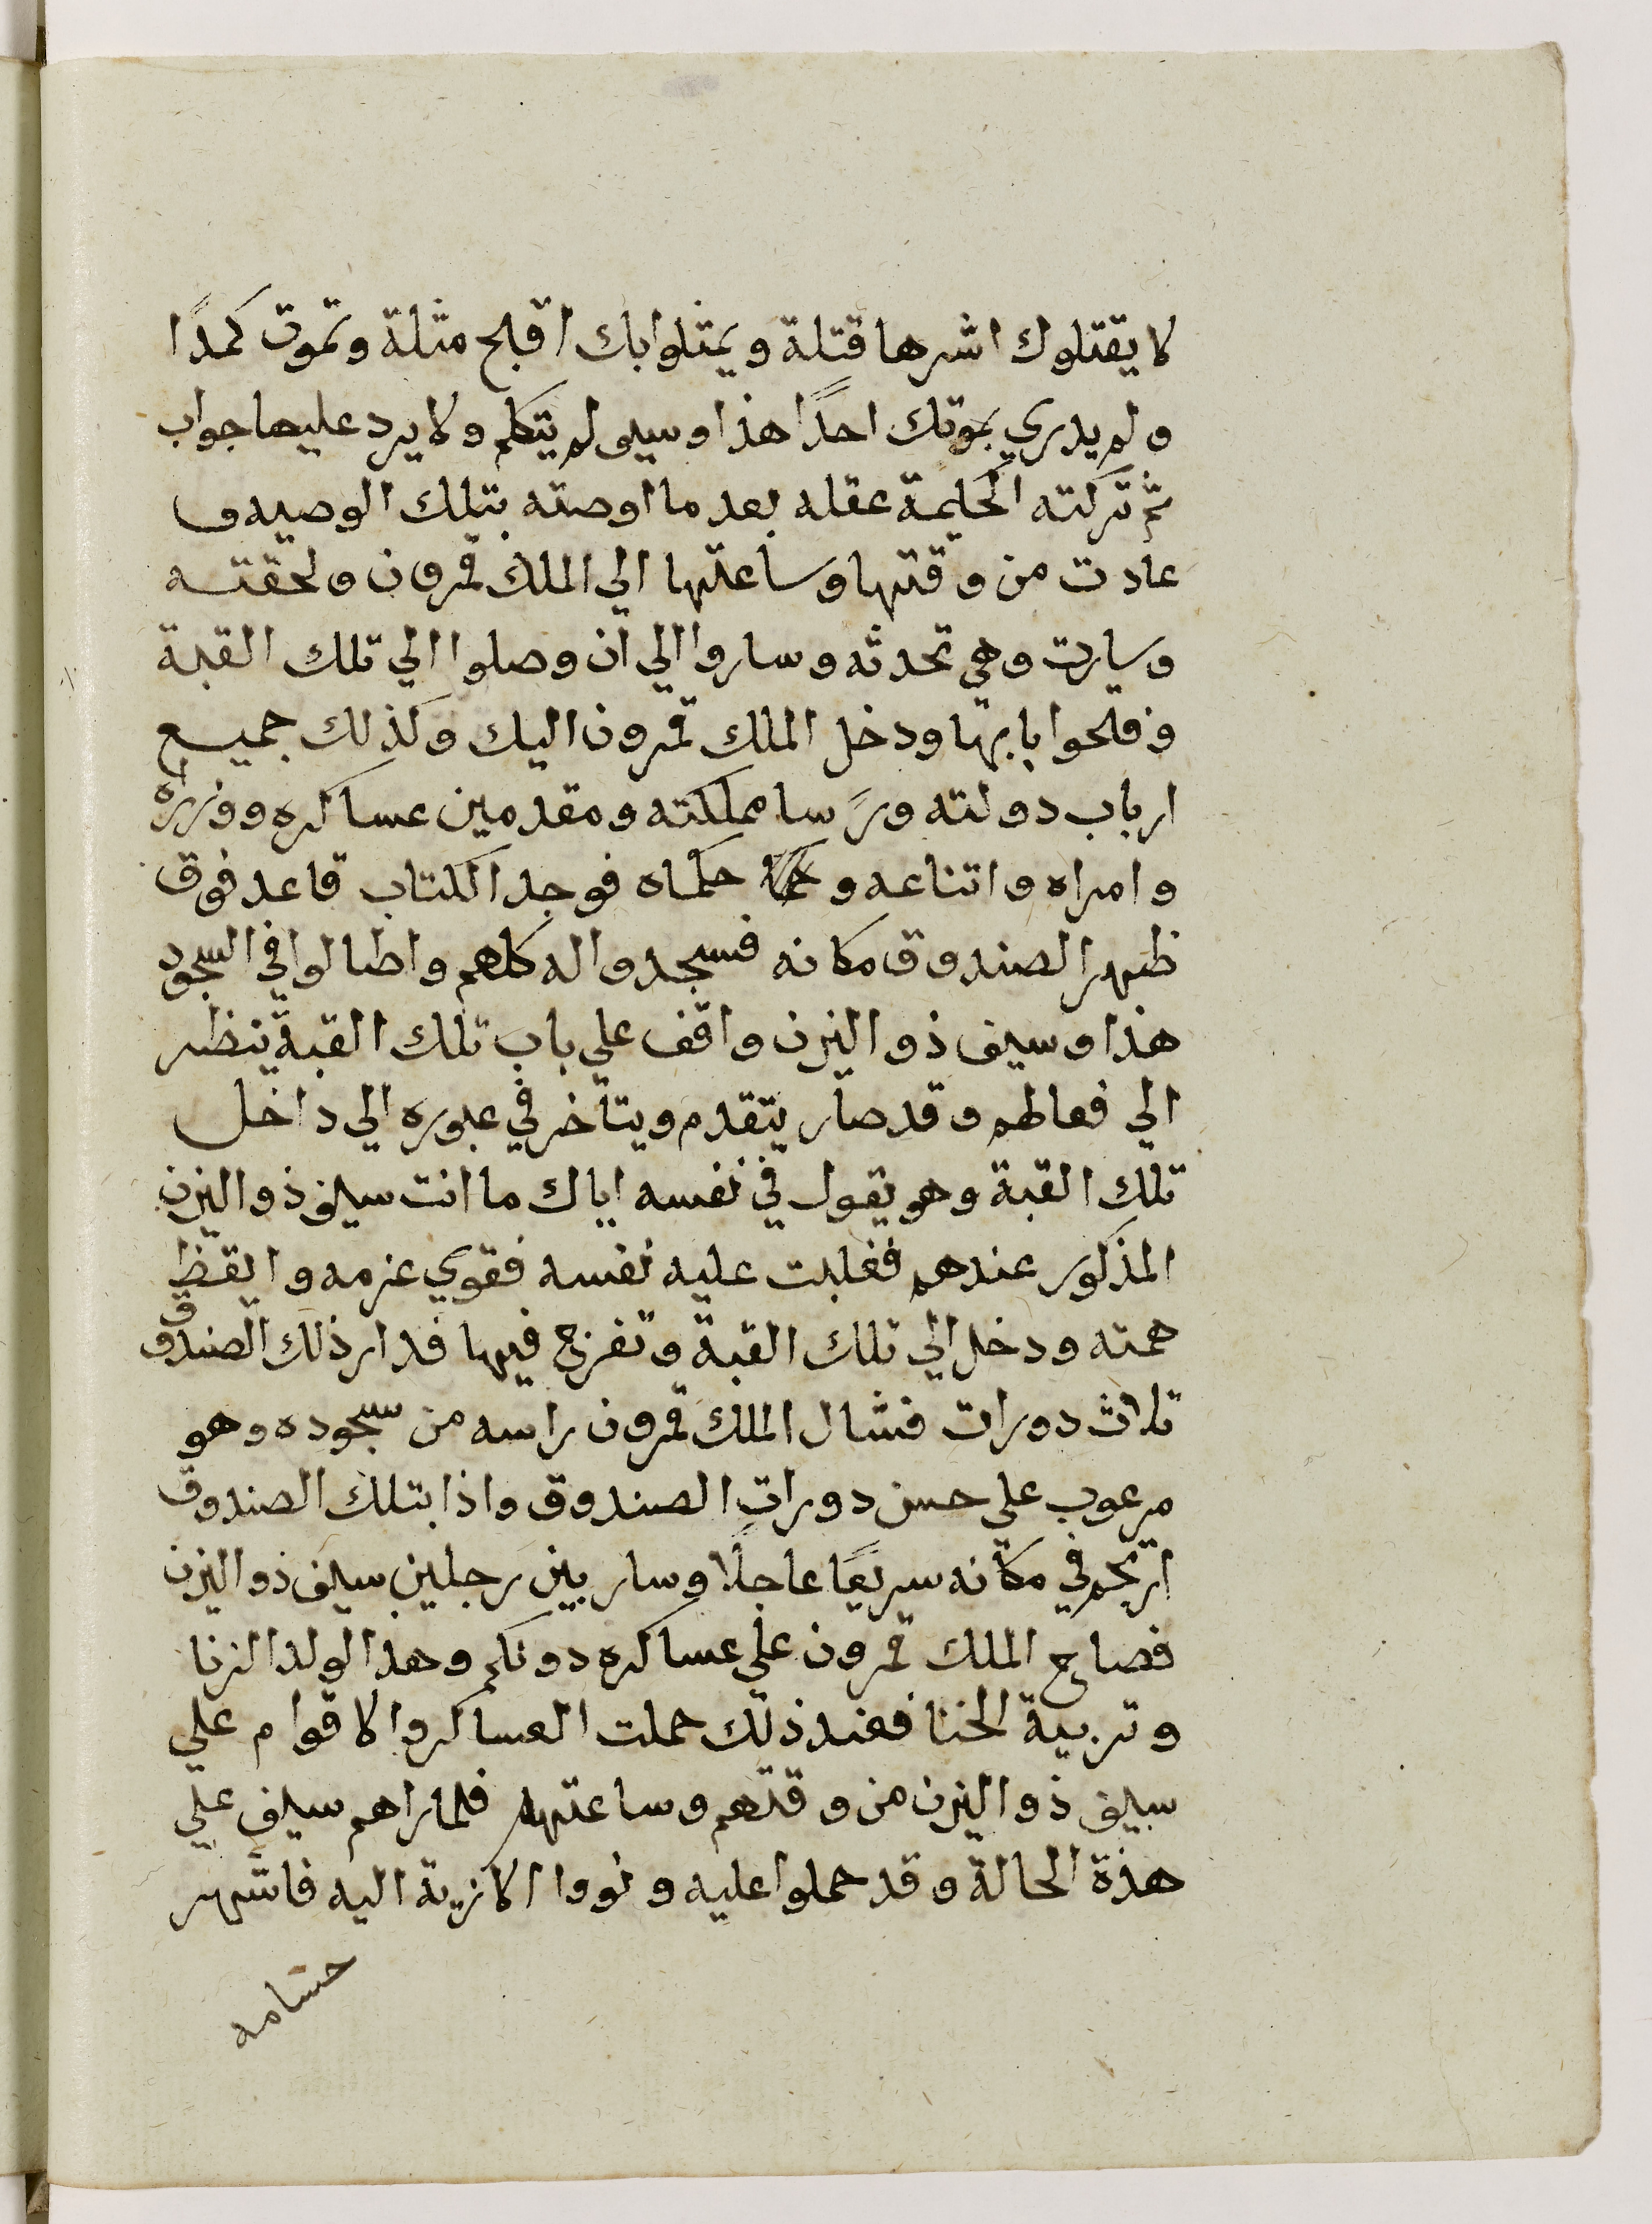 لا يقتلوك اشرها قتلة ويمثلوا بك اقبح مثلة وتموت كمدًا
ولم يدري بموتك احدًا هذا وسيف لم يتكلم ولا يرد عليها جواب
ثم تركته الحكيمة عقله بعد ما اوصته بتلك الوصيه و
عادت من وقتها وساعتها الي الملك قمرون ولحقته
وسارت وهي تحدثه وساروا الي ان وصلوا الي تلك القبة
وفتحوا بابها ودخل الملك قمرون اليك وكذلك جميع
ارباب دولته ورَسا مملكته ومقدمين عساكره ووزراه
وامراه واتناعه و حكماه فوجد الكتاب قاعد فوق
ظهر الصندوق مكانه فسجدوا له كلهم واطالوا في السجود
هذا وسيف ذو اليزن واقف علي باب تلك القبة ينظر
الي فعالهم وقد صار يتقدم ويتاخر في عبوره الي داخل
تلك القبة وهو يقول في نفسه اياك ما انت سيف ذو اليزن
المذكور عندهم فغلبت عليه نفسه فقوي عزمه وايقظ
همته ودخل الي تلك القبة وتفرج فيها فدار ذلك الصندوق
ثلاث دورات فشال الملك قمرون راسه من سجوده وهو
مرعوب علي حسن دورات الصندوق واذا بتلك الصندوق
ارتجم في مكانه سريعًا عاجلًا وسار بين رجلين سيف ذو اليزن
فصاح الملك قمرون علي عساكره دونكم وهذا الولد الزنا
وتربية الخنا فعند ذلك حملت العساكر والاقوام علي
سيف ذو اليزن من وقتهم وساعتهم فلما راهم سيف علي
هذة الحالة وقد حملوا عليه ونووا الازية اليه فاشهر
حسامه